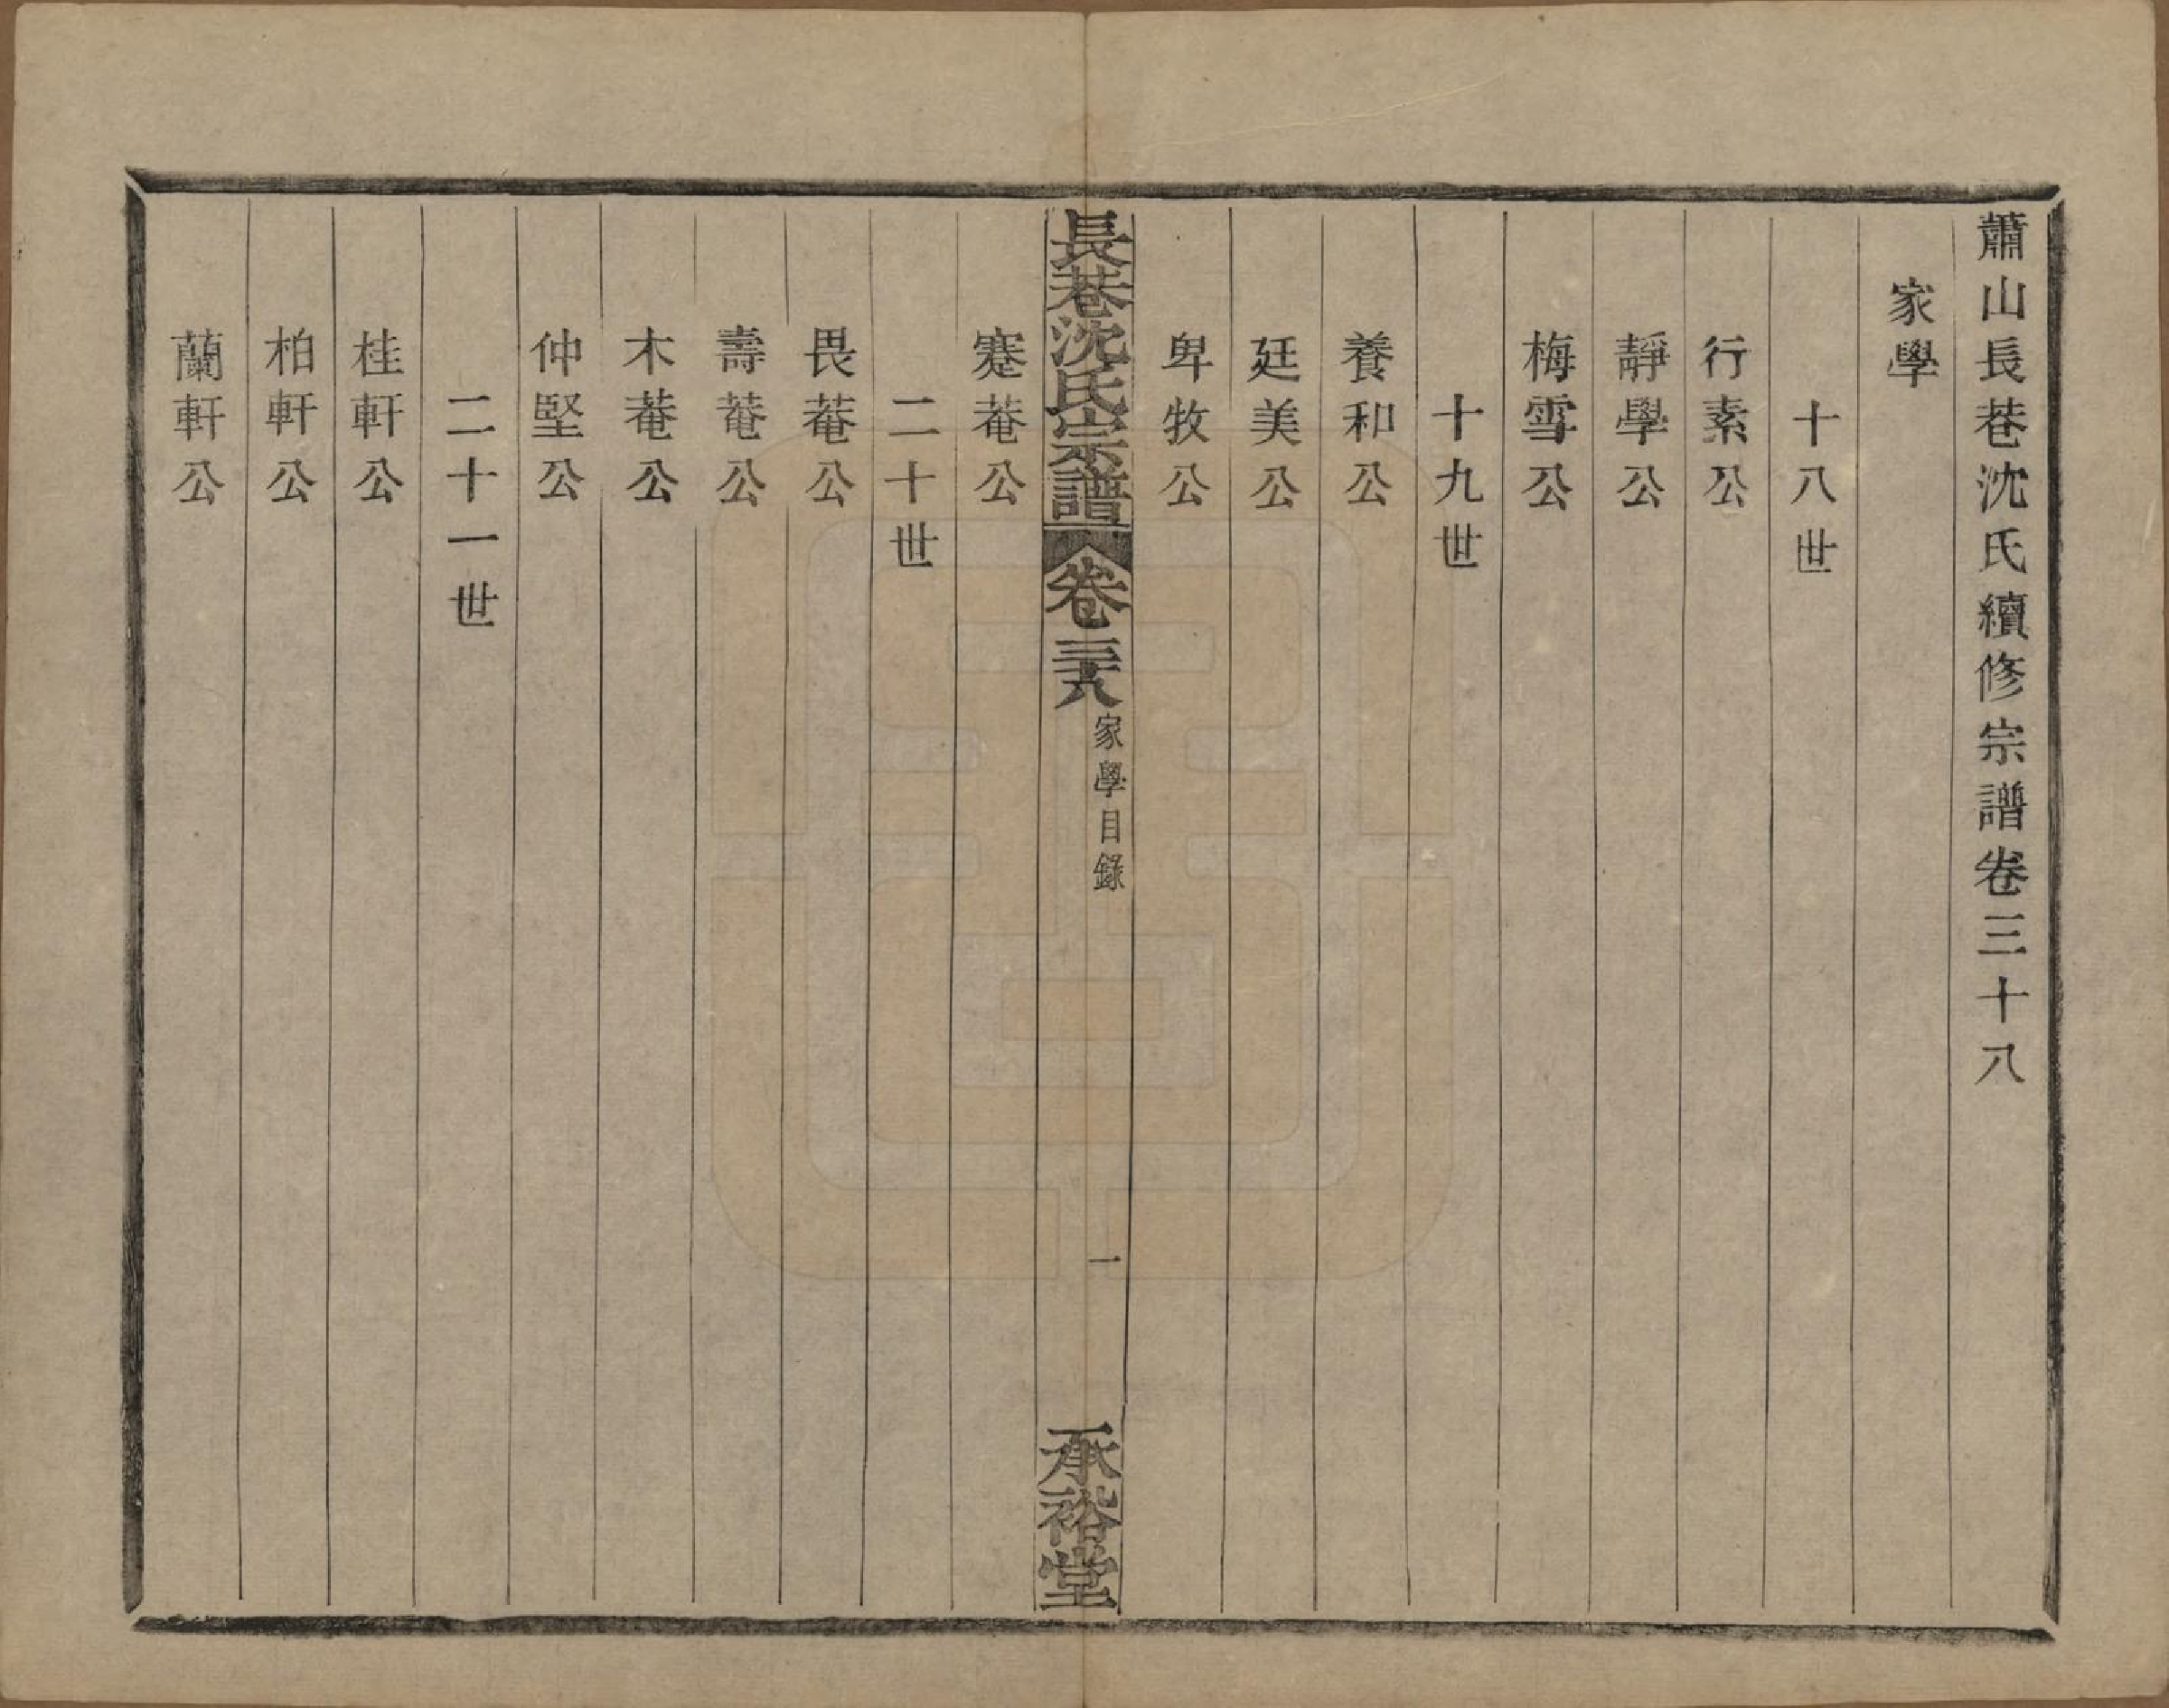 蕭山長巷沈氏續修宗譜卷三十八
家學
十八世
行素公
靜學公
梅雪公
十九世
養和公
廷美公
卑牧公
長巷沈氏宗譜
卷三十八
家學目錄
一
承裕堂
蹇菴公
二十世
畏菴公
壽菴公
木菴公
仲堅公
二十一世
桂軒公
柏軒公
蘭軒公